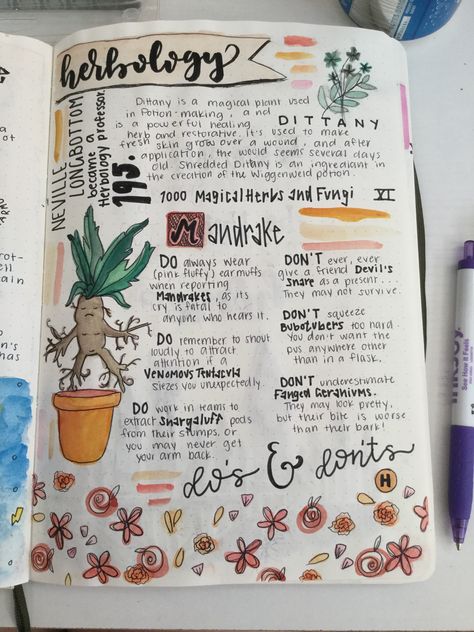 herbology
NEVILLE
LONGBOTTOM
became a
Herbology professor.
195.
Dittany is a magical plant used
in Potion-making, and
is a powerful healing
DITTANY
herb and restorative. it's used to make
fresh skin grow over a wound, and after
application, the would seems several days
old. Shredded Dittany is an ingredient in
the creation of the Wiggenweld potion.
1000 Magical Herbs and Fungi VI
Mandrake
DO always wear
(pink fluffy) earmuffs
when reporting
Mandrakes, as its
cry is fatal to
anyone who hears it.
DO remember to shout
loudly to attract
attention if a
Venomous Tentacula
siezes you unexpectedly.
DO work in teams to
extract Snargaluff pods
from their stumps, or
you may never get
your arm back.
DON'T ever, ever
give a friend Devil's
Snare as a present...
They may not survive.
DON'T squeeze
Bubotubers too hard
You don't want the
pus anywhere other
than in a flask.
DON'T underestimate
Fanged Geraniums.
They may look pretty,
but their bite is worse
than their bark!
do's & don'ts
H
InkJoy
See How it Feels